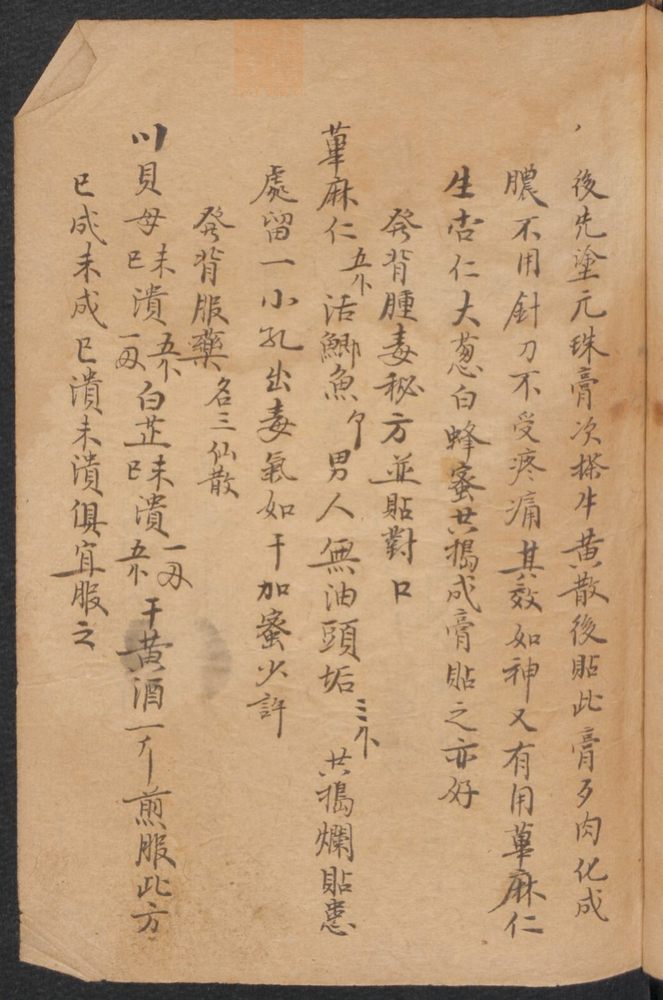 後先塗元珠膏次搽牛黄散後貼此膏歹肉化成
膿不用針刀不受疼痛其效如神又有用萆麻仁
生杏仁大葱白蜂蜜共搗成膏貼之亦好
發背腫毒秘方並貼對口
萆麻仁五个活鯽魚 男人無油頭垢三个共搗爛貼患
處留一小孔出毒氣如干加蜜少許
發背服藥名三仙散
川貝母已未潰一両五个白芷已未潰五个一両干黄酒一斤煎服此方
已成未成已潰未潰俱宜服之